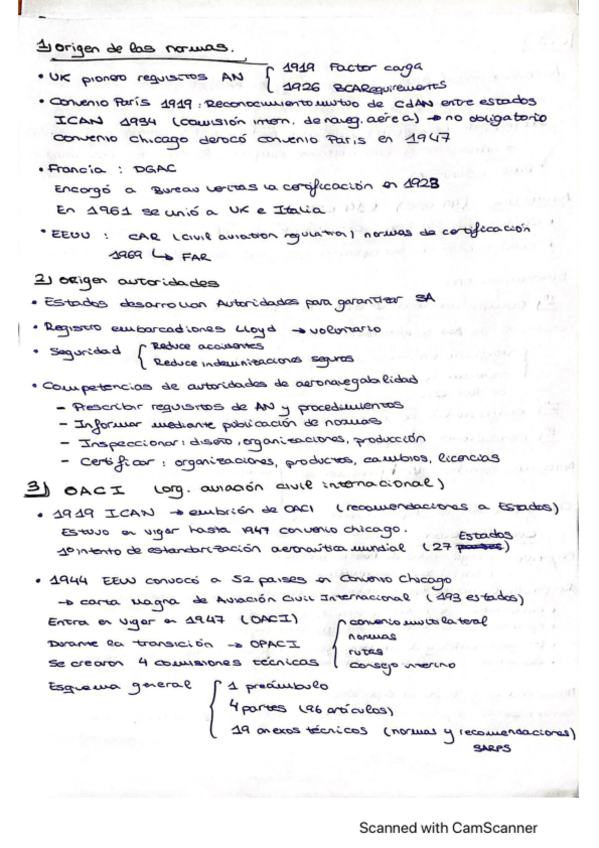 1) origen de las normas.
• UK pionero requisitos AN { 1919 Factor carga
1926 BCARequirements
• Convenio París 1919: Reconocimiento mutuo de CdAN entre estados
ICAN 1934 (comisión intern. de naveg. aérea) → no obligatorio
Convenio Chicago derocó convenio París en 1947
• Francia : DGAC
Encorgó a Bureau Veritas la certificación en 1928
En 1961 se unió a UK e Italia
• EEUU : CAR (civil aviation regulation) normas de certificación
1969 ↳ FAR
2) origen autoridades
• Estados desarrollan Autoridades para garantizar SA
• Registro embarcaciones Lloyd → voluntario
• Seguridad { Reduce accidentes
Reduce indemnizaciones seguros
• Competencias de autoridades de aeronavegabilidad
- Prescribir requisitos de AN y procedimientos
- Informar mediante publicación de normas
- Inspeccionar: diseño, organizaciones, producción
- Certificar : organizaciones, productos, cambios, licencias
3) OACI (org. aviación civil internacional)
• 1919 ICAN → embrión de OACI (recomendaciones a Estados)
Estuvo en vigor hasta 1947 convenio chicago.
1º intento de estandarización aeronaútica mundial (27 países Estados)
• 1944 EEUU convocó a 52 países en Convenio Chicago
→ carta magna de Aviación Civil Internacional (193 estados)
Entra en vigor en 1947 (OACI)
Durante la transición → OPACI
Se crearon 4 comisiones técnicas { convenio multilateral
normas
rutas
consejo interino
Esquema general { 1 preámbulo
4 partes (96 artículos)
19 anexos técnicos (normas y recomendaciones)
SARPS
Scanned with CamScanner